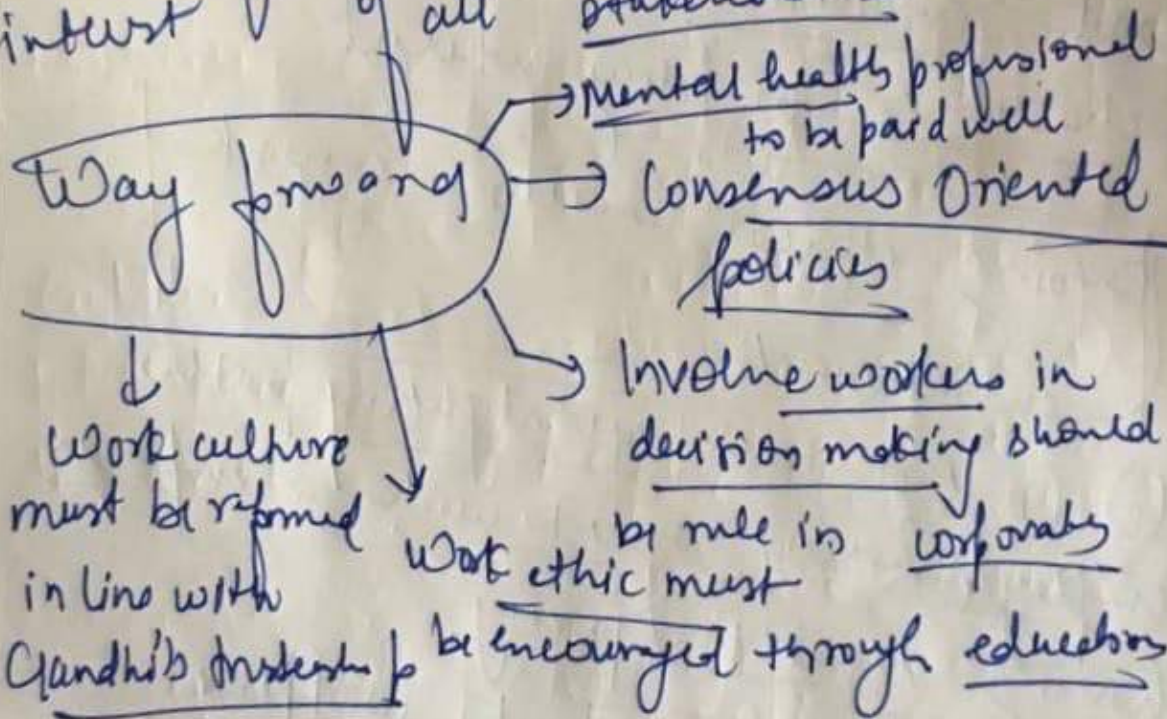 interest of all stakeholders
Mental health professional
to be paid well
Way forward
Consensus Oriented
policies
Involve workers in
decision making should
be rule in corporates
Work culture
must be reformed
in line with
Gandhi's trusteeship
Work ethic must
be encouraged through education